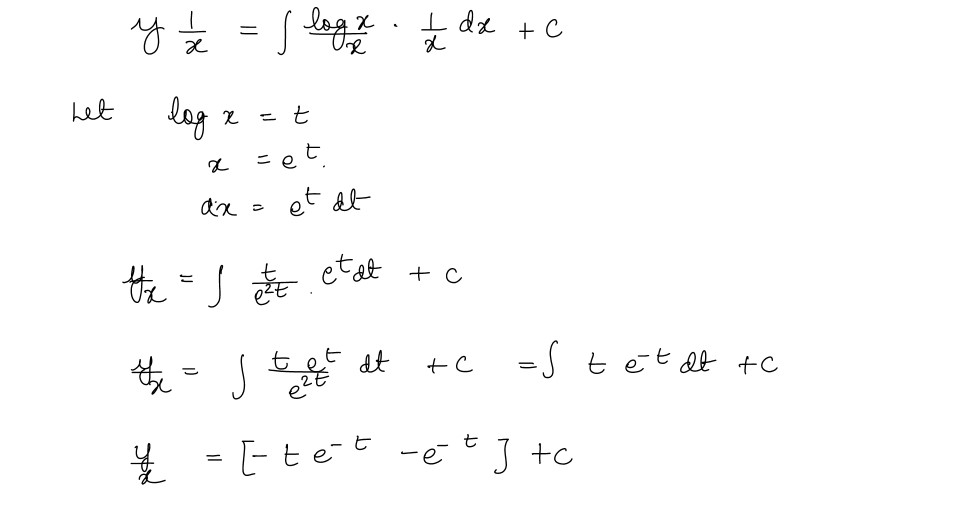 y 1/x = ∫ log x/x · 1/x dx + C
Let log x = t
x = e^t.
dx = e^t dt
y/x = ∫ t/e^2t . e^t dt + C
y/x = ∫ t e^t/e^2t dt + C = ∫ t e^-t dt + C
y/x = [- t e^-t - e^-t] + C